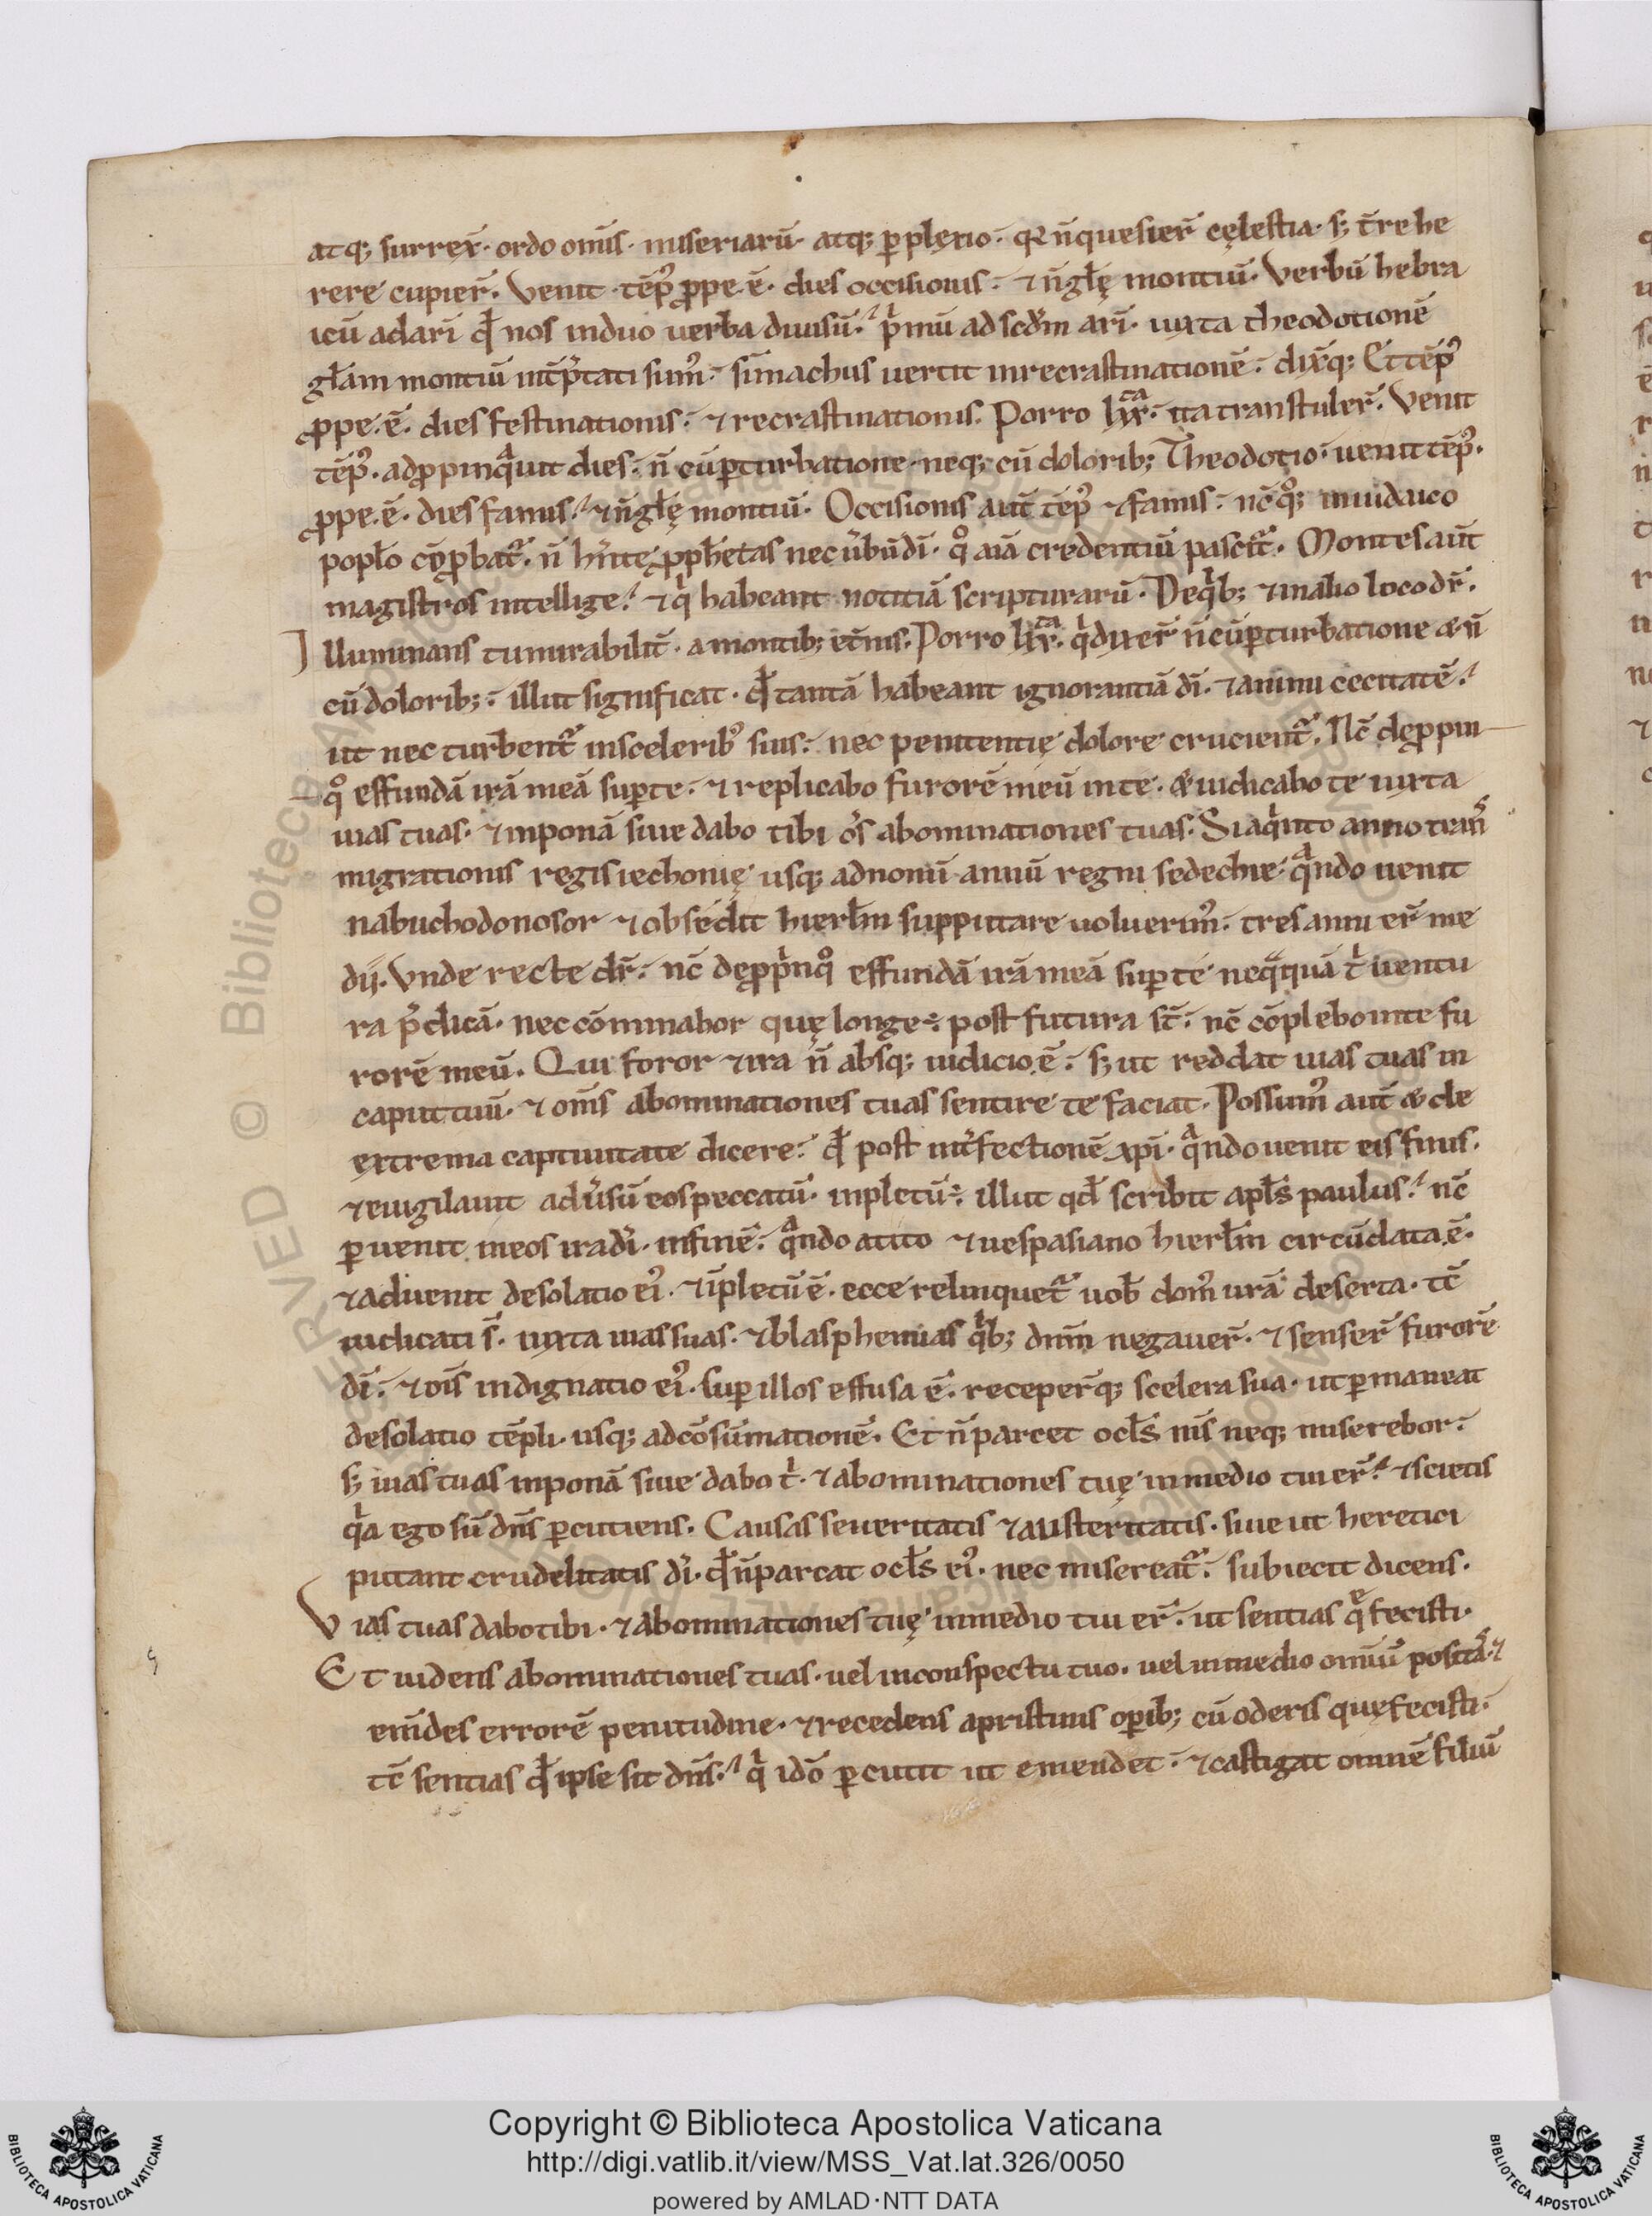 atq; surrex̄. ordo om̄is. miseriarū. atq; ꝑplexio. qꝛ n̄ quesier̄ cęlestia. s; t̄re he
rere cupier̄. Venit tēp᷒ ꝓpe ē. dies occisionis. ⁊ n̄ głę montiū. Verbū hebra
icū adari qđ nos in duo uerba diuisū. pͥmū ad scd̄m ari. iuxta theodotionē
głam montiū int̄p̄tati sum᷒. sīmachus uertit in recrastinationē. dix̄q; Et tēp᷒
ꝓpe. ē. dies festinationis. ⁊ recrastinationis. Porro lxxᷓ͞. ita transtuler̄. Venit
tēp᷒. adꝓpinqͣuit dies. n̄ cū ꝑturbatione. neq; cū dolorib; Theodotio. uenit tēp᷒.
ꝓpe. ē. dies famis. ⁊ n̄ głę montiū. Occisionis aūt tēp᷒ ⁊ famis. nc̄ qͦ; in iudaico
popło cōꝓbat᷑. n̄ hn̄te ꝓphetas nec ūbū dī. qͦ aīa credentiū pascit᷑. Montes aūt
magistros intellige. ⁊ qͥ habeant notitiā scripturarū. De qͥb; ⁊ in alio loco dr̄.
Illuminans tu mirabilit̄. a montib; et̄nis. Porro lxxᷓ͞. qͥ dixer̄ n̄ cū ꝑturbatione & n̄
cū dolorib; illut significat. qđ tantā habeant ignorantiā dī. ⁊ animi cecitatē.
ut nec turbent᷑ in scelerib᷒ suis. nec penitentię dolore crucient᷑. Nc̄ de ꝓpin
qͦ effundā irā meā suꝑ te. ⁊ replicabo furorē meū in te. & iudicabo te iuxta
uias tuas. ⁊ inponā siue dabo tibi oms abominationes tuas. Si a qͥnto anno trans
migrationis regis iechonię usq; ad nonū annū regni sedechie. qͣndo uenit
nabuchodonosor ⁊ obsedit hierłm suppuitare uoluerim᷒. tres anni er̄ me
dij. Vnde recte dr̄. nc̄ de ꝓpͥnqͦ effundā irā meā suꝑ te neqͣquā tͥ uentu
ra p̄dicā. nec cōminabor quę longe ÷ post futura st̄. nc̄ cōplebo in te fu
rorē meū. Qui foror ⁊ ira n̄ absq; iudicio. ē. s; ut reddat uias tuas in
caput tuū. ⁊ om̄s abominationes tuas sentire te faciat. Possum᷒ aūt & de
extrema captiuitate dicere. qđ post int̄fectionē xp̄i. qͣndo uenit eis finis.
⁊ euigilauit adūsū eos peccatū. inpletū ÷ illut qđ scribit apłs paulus. nc̄
ꝑuenit in eos ira dī. in finē. qͣndo a tito ⁊ uespasiano hierłm circūdata. ē.
⁊ aduenit desolatio ei᷒. ⁊ īpletū ē. ecce relinquet᷑ uob̄ dom᷒ ur̄a deserta. tc̄
iudicati s̄. iuxta uias suas. ⁊ blasphemias qͥb; dn̄m negauer̄. ⁊ senser̄ furorē
dī. ⁊ oīs indignatio ei᷒. suꝑ illos effusa ē. receper̄q; scelera sua. ut ꝑmaneat
desolatio tēpli. usq; ad cōsūmationē. Et n̄ parcet ocłs m̄s neq; miserebor.
s; uias tuas inponā siue dabo tͥ. ⁊ abominationes tuę in medio tui er̄. ⁊ scietis
qͥa ego sū dn̄s ꝑcutiens. Causas seueritatis ⁊ austeritatis. siue ut heretici
putant crudelitatis dī. qđ n̄ parcat ocłs ei᷒. nec misereat᷑. subiecit dicens.
Vias tuas dabo tibi. ⁊ abominationes tuę in medio tui er̄. ut sentias qͤ fecisti.
Et uidens abominationes tuas. uel in conspectu tuo. uel in medio omiū posita.
em̄des errorē penitudine. ⁊ recedens a pristinis oꝑib; cū oderis quę fecisti.
tc̄ sentias qđ ipse sit dn̄s. qͥ idō ꝑcutit ut emendet. ⁊ castigat omnē filiū
Copyright © Biblioteca Apostolica Vaticana
http://digi.vatlib.it/view/MSS_Vat.lat.326/0050
powered by AMLAD·NTT DATA